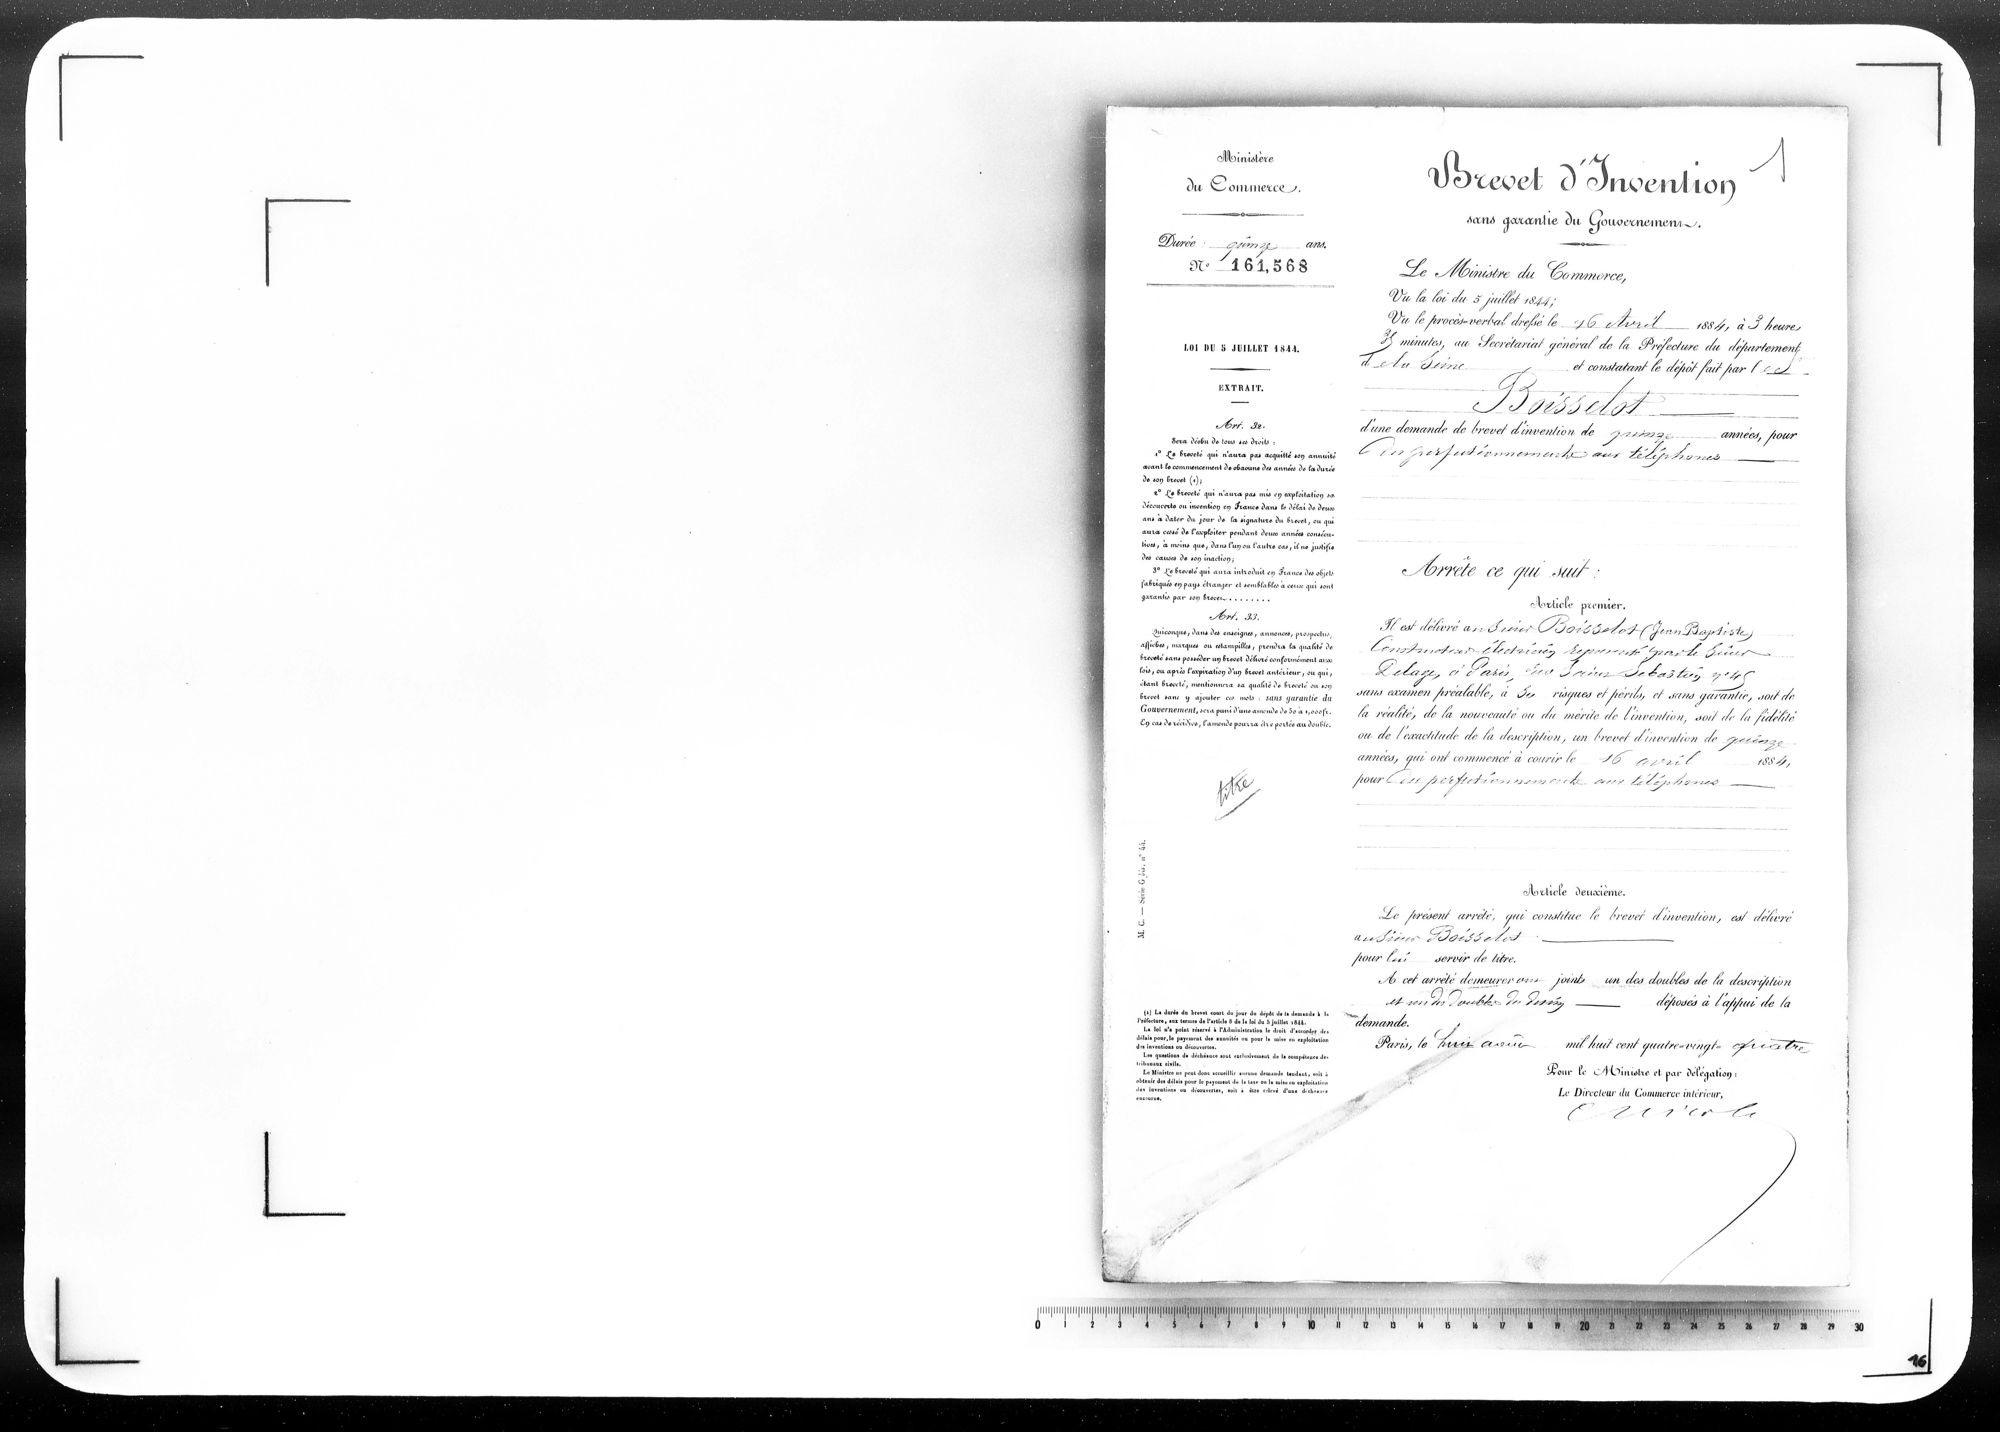 1
Ministère
du Commerce.
Durée : quinze ans.
N° 161,568
LOI DU 5 JUILLET 1844.
EXTRAIT.
Art. 32.
Sera déchu de tous ses droits :
1° Le breveté qui n'aura pas acquitté son annuité
avant le commencement de chacune des années de la durée
de son brevet (1);
2° Le breveté qui n'aura pas mis en exploitation sa
découverte ou invention en France dans le délai de deux
ans à dater du jour de la signature du brevet, ou qui
aura cessé de l'exploiter pendant deux années consécu-
tives, à moins que, dans l'un ou l'autre cas, il ne justifie
des causes de son inaction;
3° Le breveté qui aura introduit en France des objets
fabriqués en pays étranger et semblables à ceux qui sont
garantis par son brevet........
Art. 33.
Quiconque, dans des enseignes, annonces, prospectus,
affiches, marques ou estampilles, prendra la qualité de
breveté sans posséder un brevet délivré conformément aux
lois, ou après l'expiration d'un brevet antérieur, ou qui,
étant breveté, mentionnera sa qualité de breveté ou son
brevet sans y ajouter ces mots : sans garantie du
Gouvernement, sera puni d'une amende de 50 à 1,000 fr.
En cas de récidive, l'amende pourra être portée au double.
titre
M. C. — Série G bis, n° 44.
(1) La durée du brevet court du jour du dépôt de la demande à la
Préfecture, aux termes de l'article 8 de la loi du 5 juillet 1844.
La loi n'a point réservé à l'Administration le droit d'accorder des
délais pour le payement des annuités ou pour la mise en exploitation
des inventions ou découvertes.
Les questions de déchéance sont exclusivement de la compétence des
tribunaux civils.
Le Ministre ne peut donc accueillir aucune demande tendant, soit à
obtenir des délais pour le payement de la taxe ou la mise en exploitation
des inventions ou découvertes, soit à être relevé d'une déchéance
encourue.
Brevet d'Invention
sans garantie du Gouvernement.
Le Ministre du Commerce,
Vu la loi du 5 juillet 1844;
Vu le procès-verbal dressé le 16 Avril 1884, à 3 heures
35 minutes, au Secrétariat général de la Préfecture du département
de la Seine et constatant le dépôt fait par le S
Boisselot
d'une demande de brevet d'invention de quinze années, pour
des perfectionnements aux téléphones
Arrête ce qui suit :
Article premier.
Il est délivré au Sieur Boisselot (Jean Baptiste)
Constructeur électricien, représenté par le Sieur
Delage, à Paris, rue Saint Sébastien n° 45
sans examen préalable, à ses risques et périls, et sans garantie, soit de
la réalité, de la nouveauté ou du mérite de l'invention, soit de la fidélité
ou de l'exactitude de la description, un brevet d'invention de quinze
années, qui ont commencé à courir le 16 avril 1884,
pour des perfectionnements aux téléphones
Article deuxième.
Le présent arrêté, qui constitue le brevet d'invention, est délivré
au Sieur Boisselot
pour lui servir de titre.
A cet arrêté demeureront joints un des doubles de la description
et un des doubles du dessin déposés à l'appui de la
demande.
Paris, le huit août mil huit cent quatre-vingt-quatre
Pour le Ministre et par délégation :
Le Directeur du Commerce intérieur,
0 1 2 3 4 5 6 7 8 9 10 11 12 13 14 15 16 17 18 19 20 21 22 23 24 25 26 27 28 29 30
16